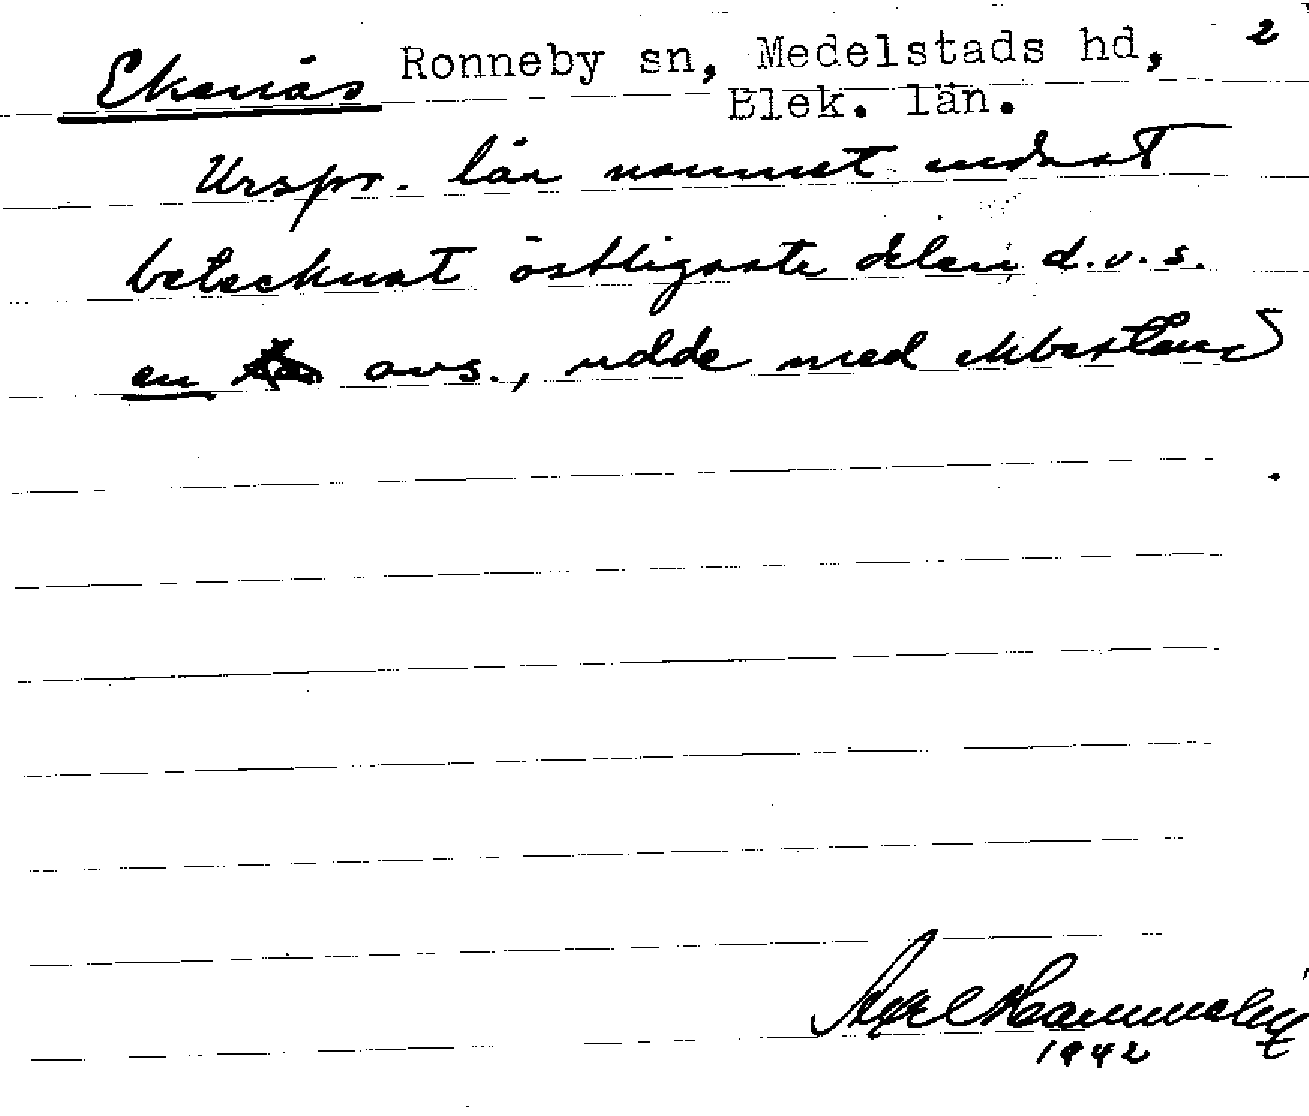 Ekenäs Ronneby sn, Medelstads hd, 2
Blek. län.
Urspr. lär namnet endast
betecknat östligaste delen, d.v.s.
en avs., udde med ekbestånd
Axel Hammelin
1942